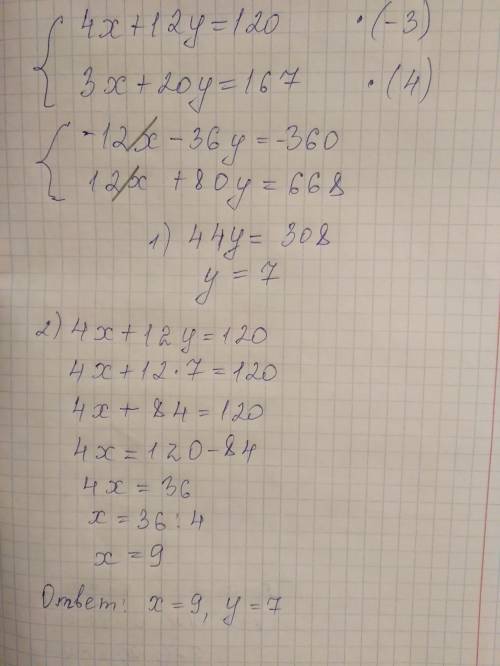 4x+12y=120 ·(-3)
3x+20y=167 ·(4)
-12x-36y=-360
12x+80y=668
1) 44y=308
y=7
2) 4x+12y=120
4x+12·7=120
4x+84=120
4x=120-84
4x=36
x=36:4
x=9
Ответ: x=9, y=7